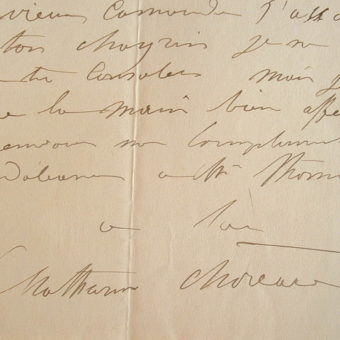 vieux camarade j'ass
ton chagrin je ne
te consoler mais j
la main bien affe
mes compliment
à Mr Thom
a toi
Mathurin Moreau